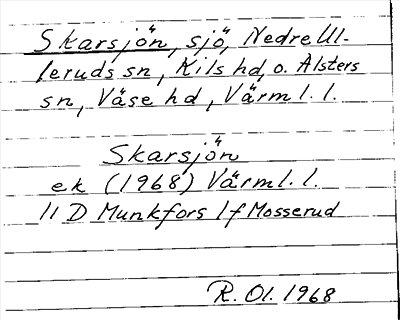 Skarsjön, sjö, Nedre Ul-
leruds sn, Kils hd, o. Alsters
sn, Väse hd, Värml. l.
Skarsjön
ek (1968) Värml. l.
11 D Munkfors 1 f Mosserud
R. Ol. 1968